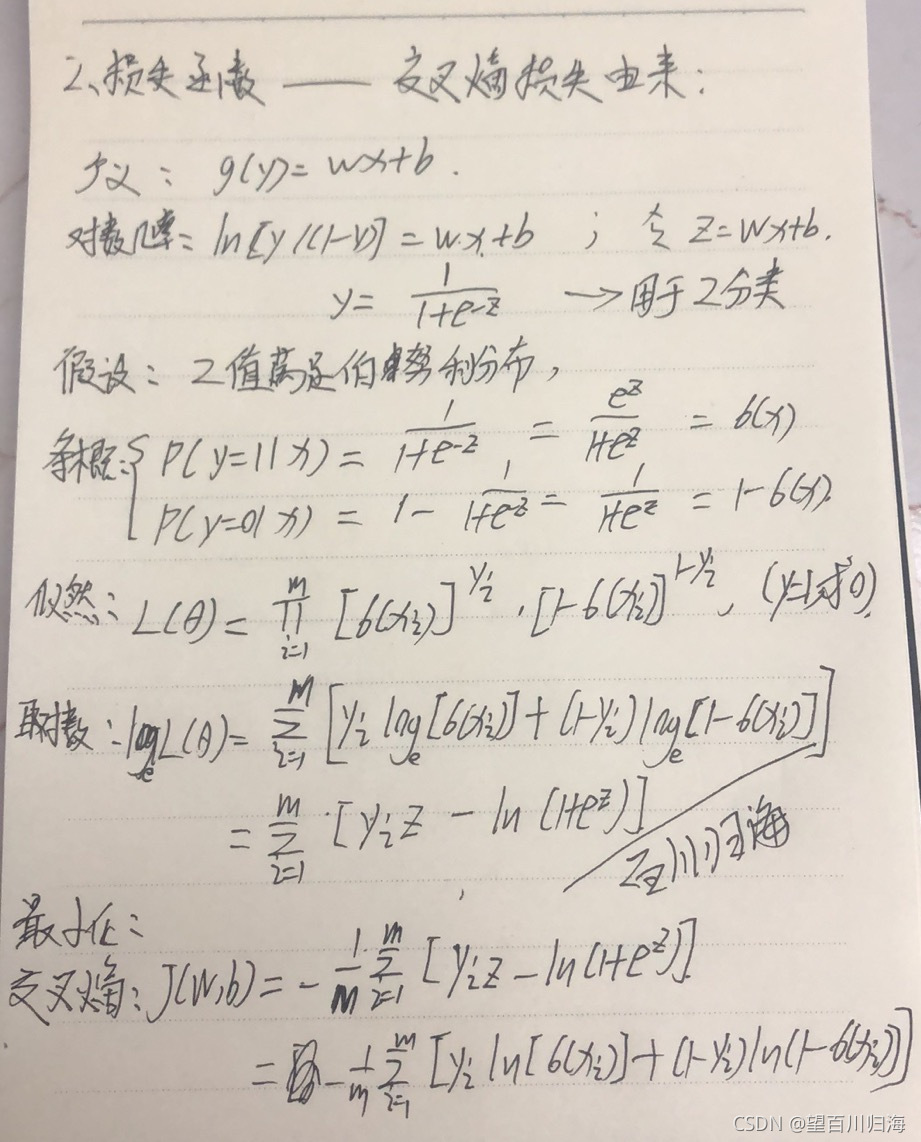 2、损失函数 —— 交叉熵损失由来:
定义: g(y)= wx+b.
对数几率: ln[y/(1-y)] = wx+b ; 令 z=wx+b.
y= 1/(1+e^-z) → 用于2分类
假设: 2值满足伯努利分布,
条概: { P(y=1|x) = 1/(1+e^-z) = e^z/(1+e^z) = б(x)
P(y=0|x) = 1- 1/(1+e^-z) = 1/(1+e^z) = 1-б(x).
似然: L(θ) = ∏_{i=1}^{m} [б(xi)]^{yi} · [1-б(xi)]^{1-yi}, (y=1或0)
取对数: log_e L(θ) = ∑_{i=1}^{m} [yi log_e[б(xi)] + (1-yi) log_e[1-б(xi)]]
= ∑_{i=1}^{m} [yi z - ln(1+e^z)]
百川归海
最小化:
交叉熵: J(w,b) = - 1/m ∑_{i=1}^{m} [yi z - ln(1+e^z)]
= - 1/m ∑_{i=1}^{m} [yi ln[б(xi)] + (1-yi) ln(1-б(xi))]
CSDN @望百川归海